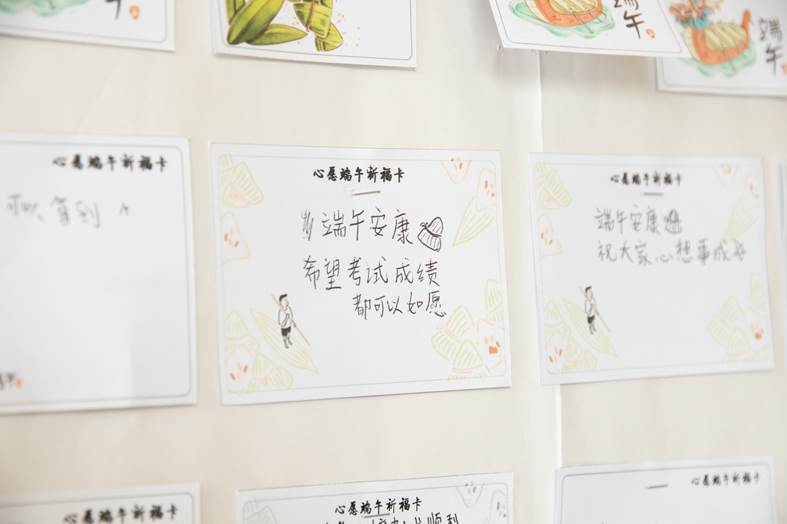 端午
端午
心愿端午祈福卡
心愿端午祈福卡
端午安康
希望考试成绩
都可以如愿
心愿端午祈福卡
端午安康
祝大家心想事成
心愿端午祈福卡
心愿端午祈福卡
顺利
心愿端午祈福卡